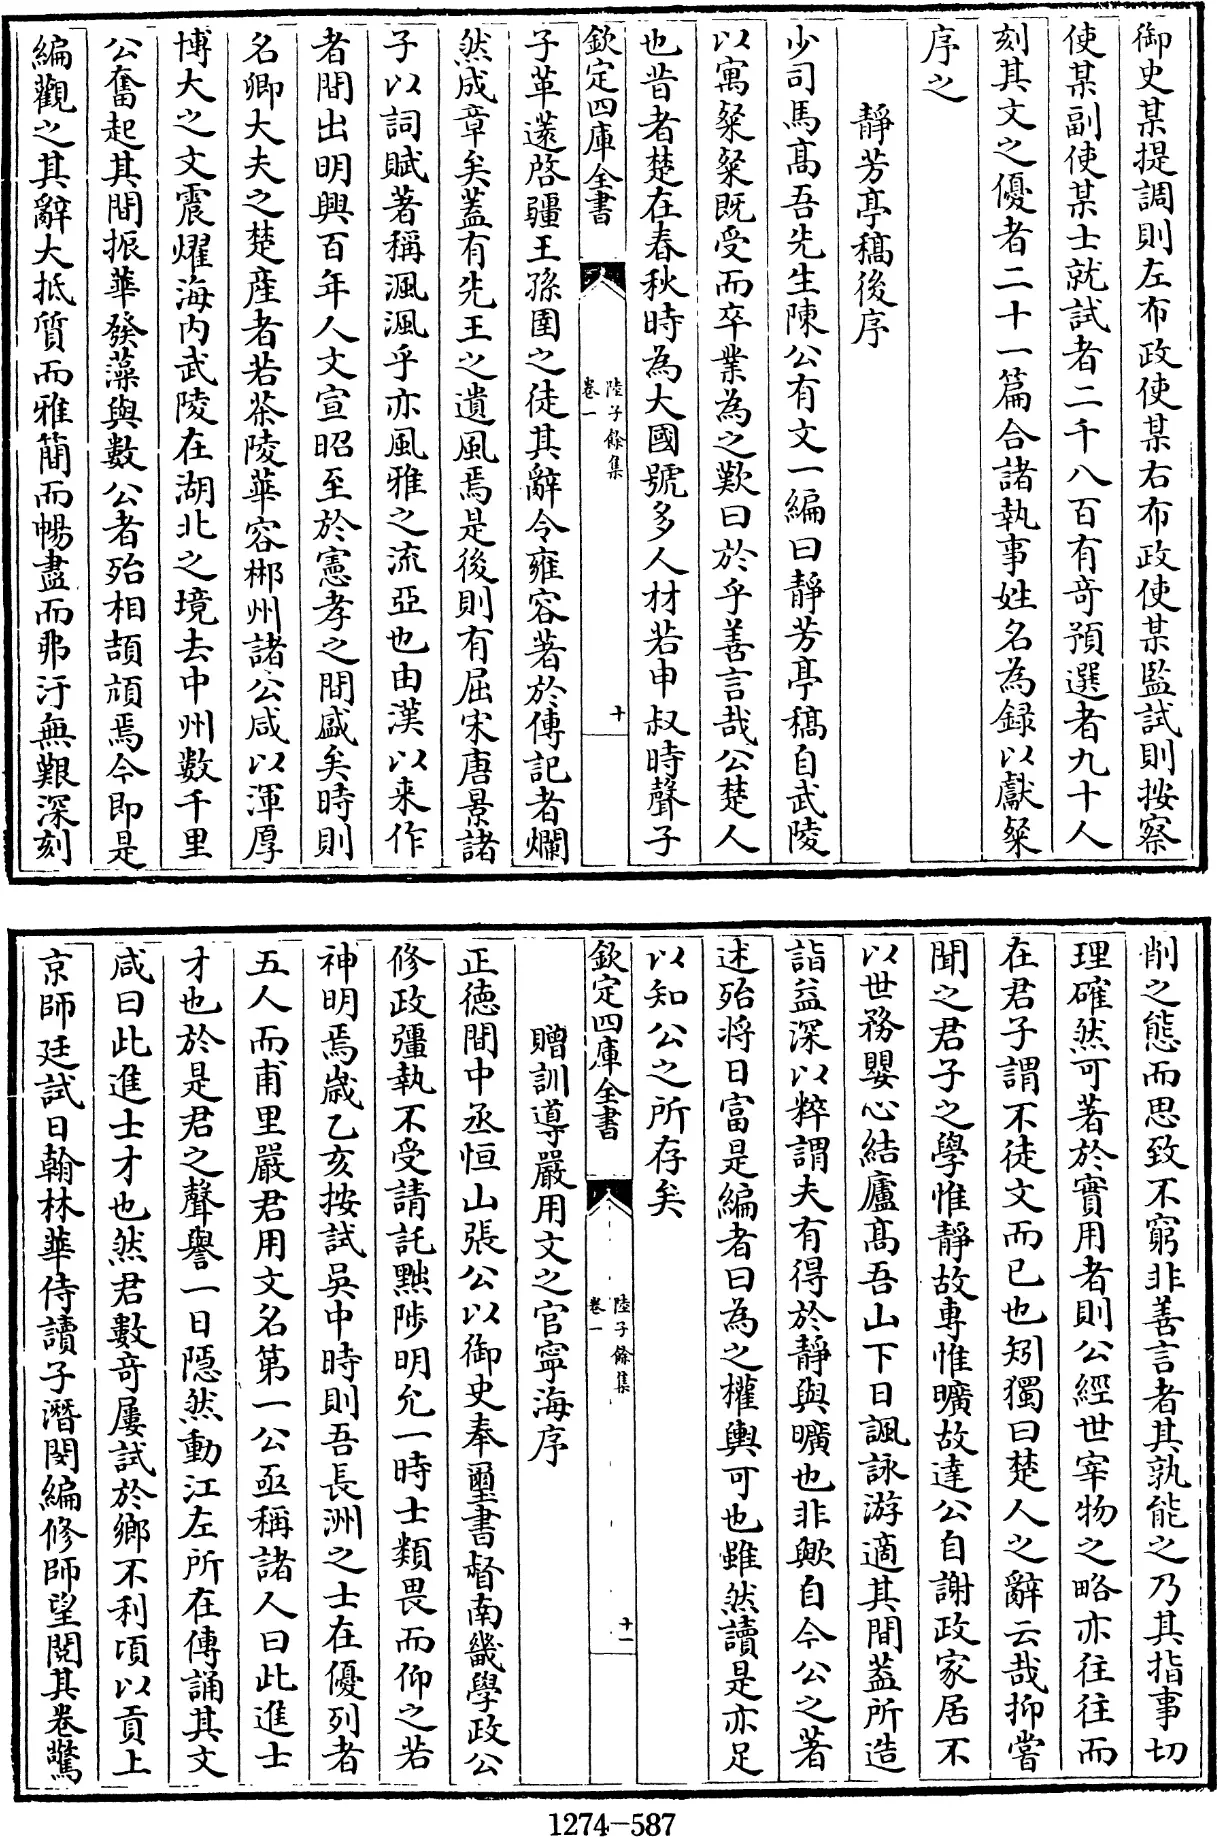 御史某提調則左布政使某右布政使某監試則按察
使某副使某士就試者二千八百有奇預選者九十人
刻其文之優者二十一篇合諸執事姓名為録以獻粲
序之
靜芳亭稿後序
少司馬髙吾先生陳公有文一編曰靜芳亭稿自武陵
以寓粲粲既受而卒業為之歎曰於乎善言哉公楚人
也昔者楚在春秋時為大國號多人材若申叔時聲子
欽定四庫全書
陸子餘集
卷一
十
子革薳啓疆王孫圉之徒其辭令雍容著於傳記者爛
然成章矣蓋有先王之遺風焉是後則有屈宋唐景諸
子以詞賦著稱渢渢乎亦風雅之流亞也由漢以来作
者間出明興百年人文宣昭至於憲孝之間盛矣時則
名卿大夫之楚産者若茶陵華容郴州諸公咸以渾厚
博大之文震燿海内武陵在湖北之境去中州數千里
公奮起其間振華發藻與數公者殆相頡頏焉今即是
編觀之其辭大抵質而雅簡而暢盡而弗汙無艱深刻
削之態而思致不窮非善言者其孰能之乃其指事切
理確然可著於實用者則公經世宰物之略亦往往而
在君子謂不徒文而已也矧獨曰楚人之辭云哉抑嘗
聞之君子之學惟靜故專惟曠故達公自謝政家居不
以世務嬰心結廬髙吾山下日諷詠游適其間葢所造
詣益深以粹謂夫有得於靜與曠也非歟自今公之著
述殆将日富是編者曰為之權輿可也雖然讀是亦足
以知公之所存矣
欽定四庫全書
陸子餘集
卷一
十一
贈訓導嚴用文之官寧海序
正德間中丞恒山張公以御史奉璽書督南畿學政公
修政彊執不受請託黜陟明允一時士類畏而仰之若
神明焉嵗乙亥按試吳中時則吾長洲之士在優列者
五人而甫里嚴君用文名第一公亟稱諸人曰此進士
才也於是君之聲譽一日隱然動江左所在傳誦其文
咸曰此進士才也然君數奇屢試於鄉不利頃以貢上
京師廷試日翰林華侍讀子潛閔編修師望閲其卷驚
1274-587